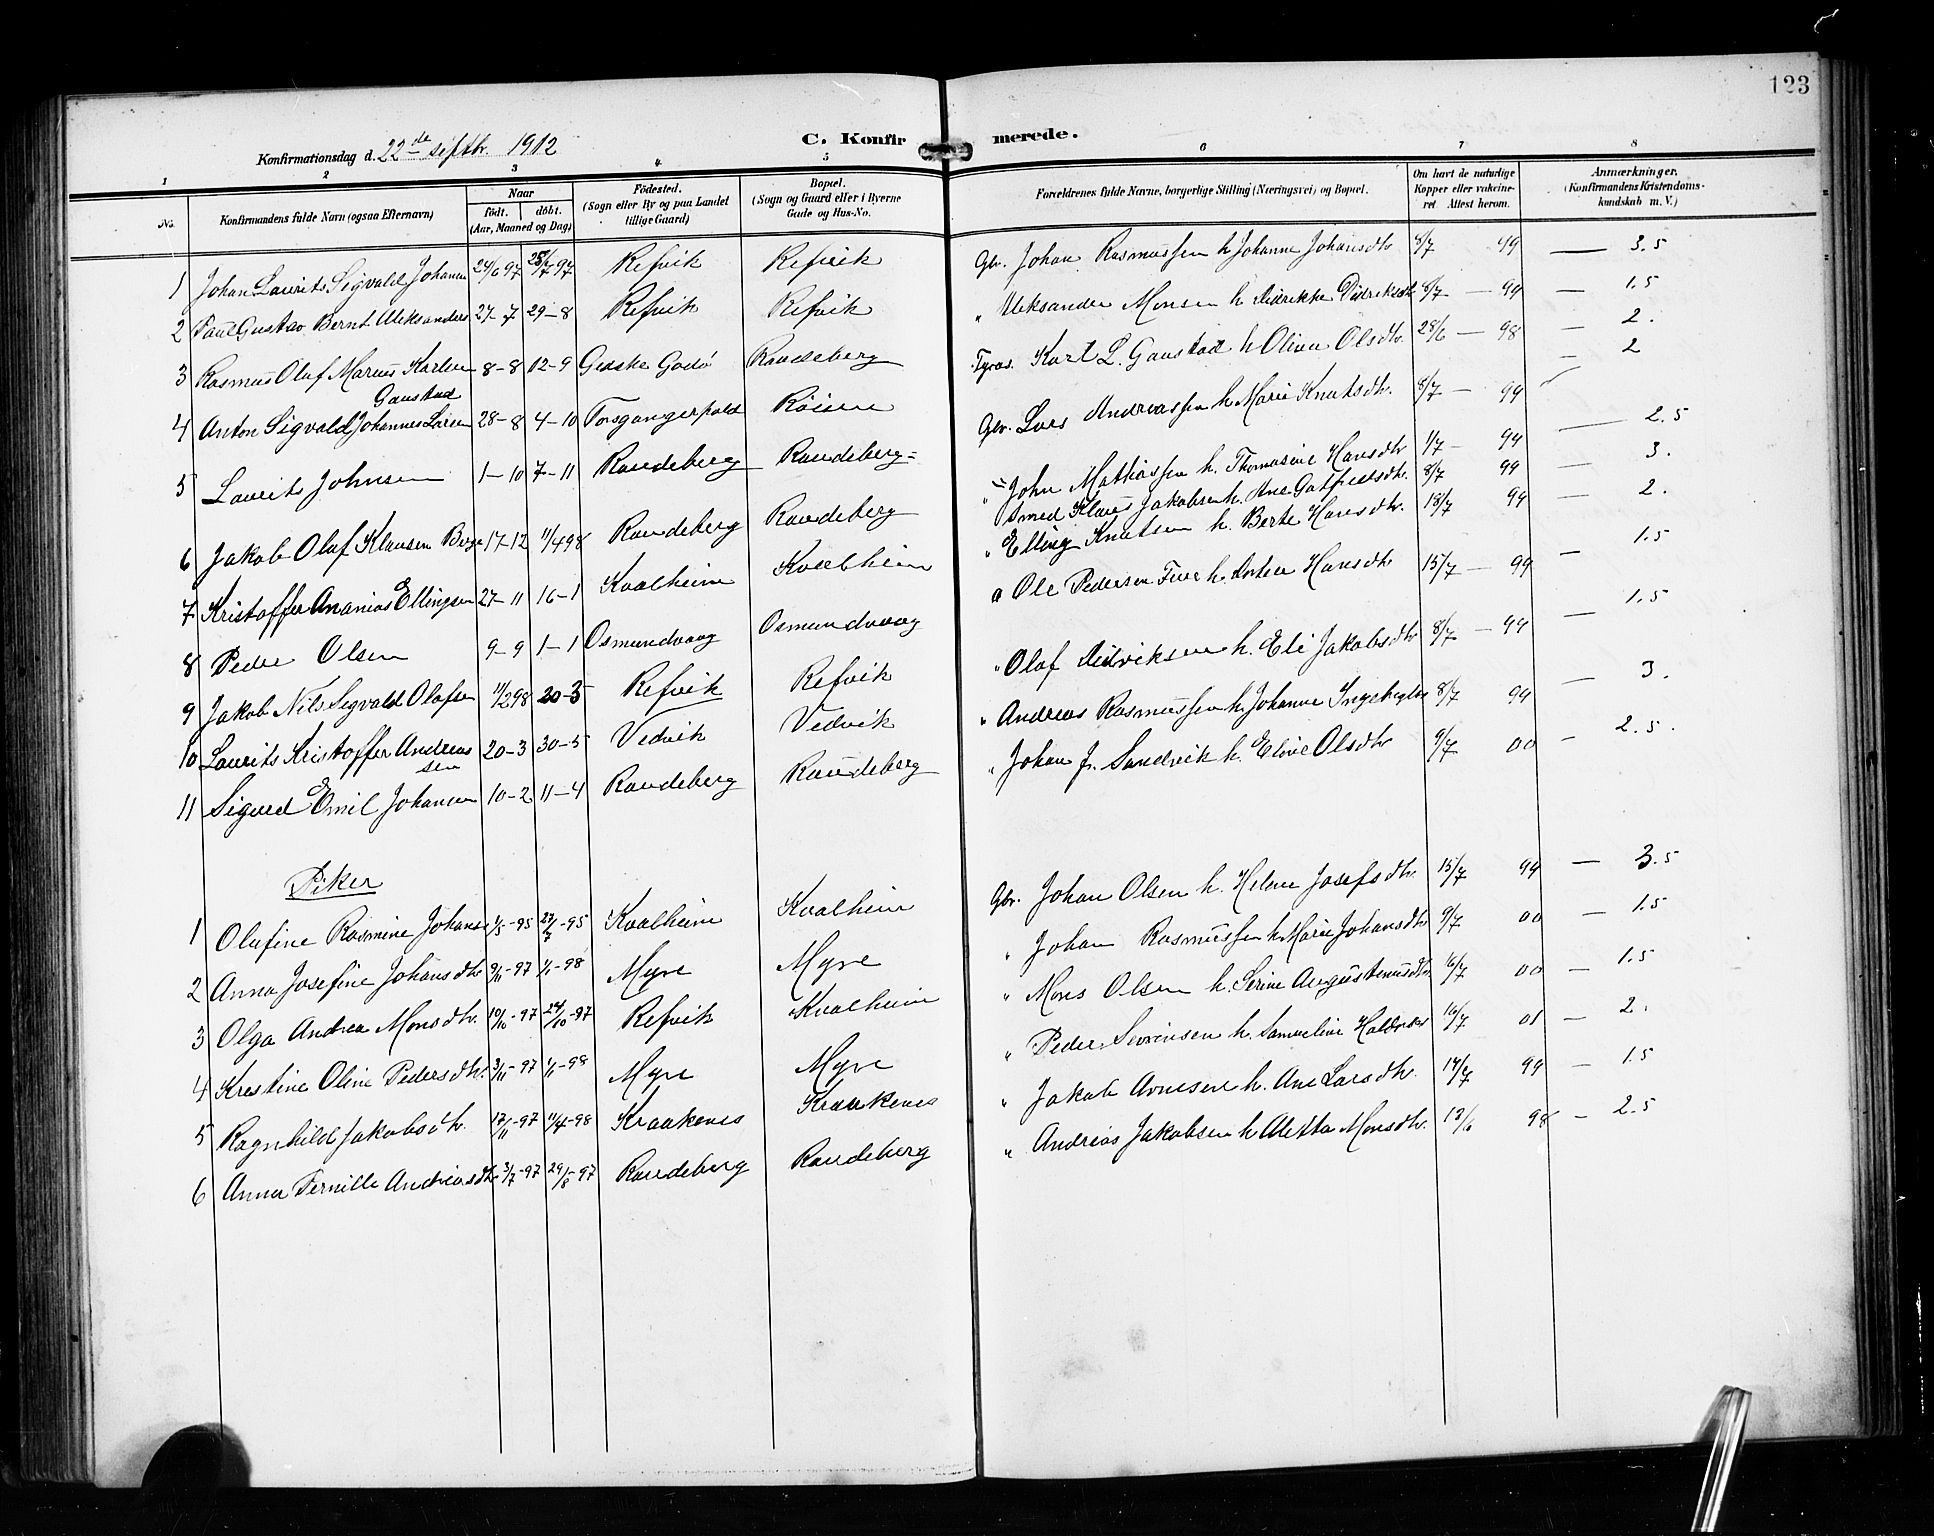 123
C. Konfirmerede.
Konfirmationsdag d. 22de septbr. 1912
1 2 3 4 5 6 7 8
No.
Konfirmandens fulde Navn (ogsaa Efternavn)
Naar
født. døbt.
(Aar, Maaned og Dag)
Födested.
(Sogn eller By og paa Landet
tillige Gaard)
Bopæl.
(Sogn og Gaard eller i Byerne
Gade og Hus-No.
Forældrenes fulde Navne, borgerlige Stilling (Næringsvei) og Bopæl.
Om havt de naturlige
Kopper eller vakcine-
ret Attest herom.
Anmærkninger.
(Konfirmandens Kristendoms-
kundskab m. V.)
1 Johan Laurits Sigvald Johansen 24/6 97 25/7 97 Refvik Refvik Gbr. Johan Rasmussen h. Johanne Johansdtr 8/7 99 — 3.5
2 Paul Gustav Bernt Aleksanders 27-7 29-8 Refvik Refvik " Aleksander Monsen h. Didrikke Didriksdtr 8/7 — 99 — 1.5
3 Rasmus Olaf Marius Karlsen 8-8 12-9 Gidske Godø Raudeberg Fyras. Karl L. Gaustad h. Olina Olsdtr. 28/6 — 98 — 2.
Gaustad
4 Anton Sigvald Johannes Larsen 28-8 4-10 Røisen Gbr. Lars Andreassen h. Marie Knutsdtr. 8/7 — 99 — 2
5 Laurits Johnsen 1-10 7-11 Raudeberg Raudeberg " John Mathiassen h. Thomasine Hansdtr 1/7 — 99 — 2.5
6 Jakob Olaf Klausen Berge 17-12 11/4 98 Raudeberg Raudeberg Smed Klaus Jakobsen h. Ane Gotfredsdtr. 8/7 99 — 3.
7 Kristoffer Ananias Ellingsen 27-11 16-1 Kvalheim Kvalheim " Elling Knutsen h. Berte Hansdtr. 18/7 99 — 2.
8 Peder Olsen 9-9 1-1 Osmundvaag Osmundvaag " Ole Pedersen h. Hansdtr 15/7 — 99 — 1.5
9 Jakob Nils Sigvald Olafsen 11/2 98 20-3 Refvik Refvik " Olaf Didriksen h. Eli Jakobsdtr 8/7 — 99 — 1.5
10 Laurits Kristoffer Andreas 20-3 30-5 Vedvik Vedvik " Andreas Rasmussen h. Johanne 8/7 99 — 3.
sen
11 Sigurd Emil Johansen 10-2 11-4 Raudeberg Raudeberg " Johan J. Sandvik h. Eline Olsdtr 9/7 00 — 2.5.
Piker
1 Olufine Rasmine Johans 1/5-95 27/7-95 Kvalheim Kvalheim Gbr. Johan Olsen h. Helene Josefsdtr. 15/7 99 — 3.5
2 Anna Josefine Johansdtr 9/11-97 1/1-98 Myre Myre " Johan Rasmussen h. Marie Johansdtr 9/7 00 — 1.5
3 Olga Andrea Monsdtr. 10/10-97 24/10-97 Refvik Kvalheim " Mons Olsen h. Serine Augustinusdtr 16/7 00 — 1.5
4 Kristine Oline Pedersdtr. 3/11-97 1/1-98 Myre Myre " Peder Severinsen h. Samueline 16/7 01 — 2.
5 Ragnhild Jakobsdtr. 17/11-97 11/4-98 Kraakenes Kraakenes " Jakob Arnesen h. Ane Larsdtr. 14/7 99 — 1.5
6 Anna Pernille Andreasdtr 3/7-97 29/8-97 Raudeberg Raudeberg " Andreas Jakobsen h. Aletta Monsdtr. 13/6 98 — 2.5